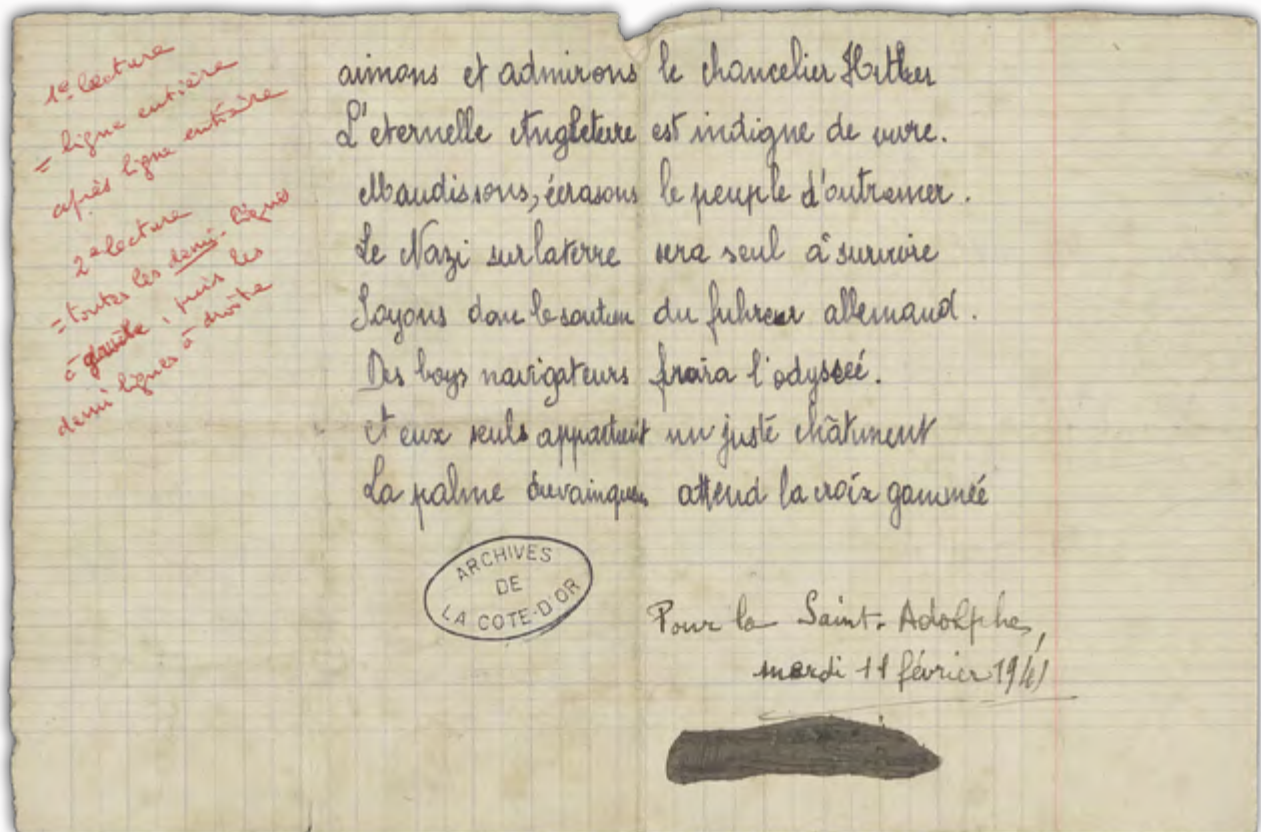 1e lecture
= ligne entière
après ligne entière
2e lecture
= toutes les demi-lignes
à gauche, puis les
demi lignes à droite
aimons et admirons le chancelier Hitler
L'eternelle Angleterre est indigne de vivre.
Maudissons, écrasons le peuple d'outremer.
Le Nazi sur la terre sera seul à survivre
Soyons donc le soutien du fuhreur allemand.
Des boys navigateurs finira l'odysseé.
et eux seuls appartient un juste châtiment
La palme du vainqueur attend la croix gammeé
ARCHIVES
DE
LA COTE-D'OR
Pour la Saint-Adolphe,
mardi 11 février 1941